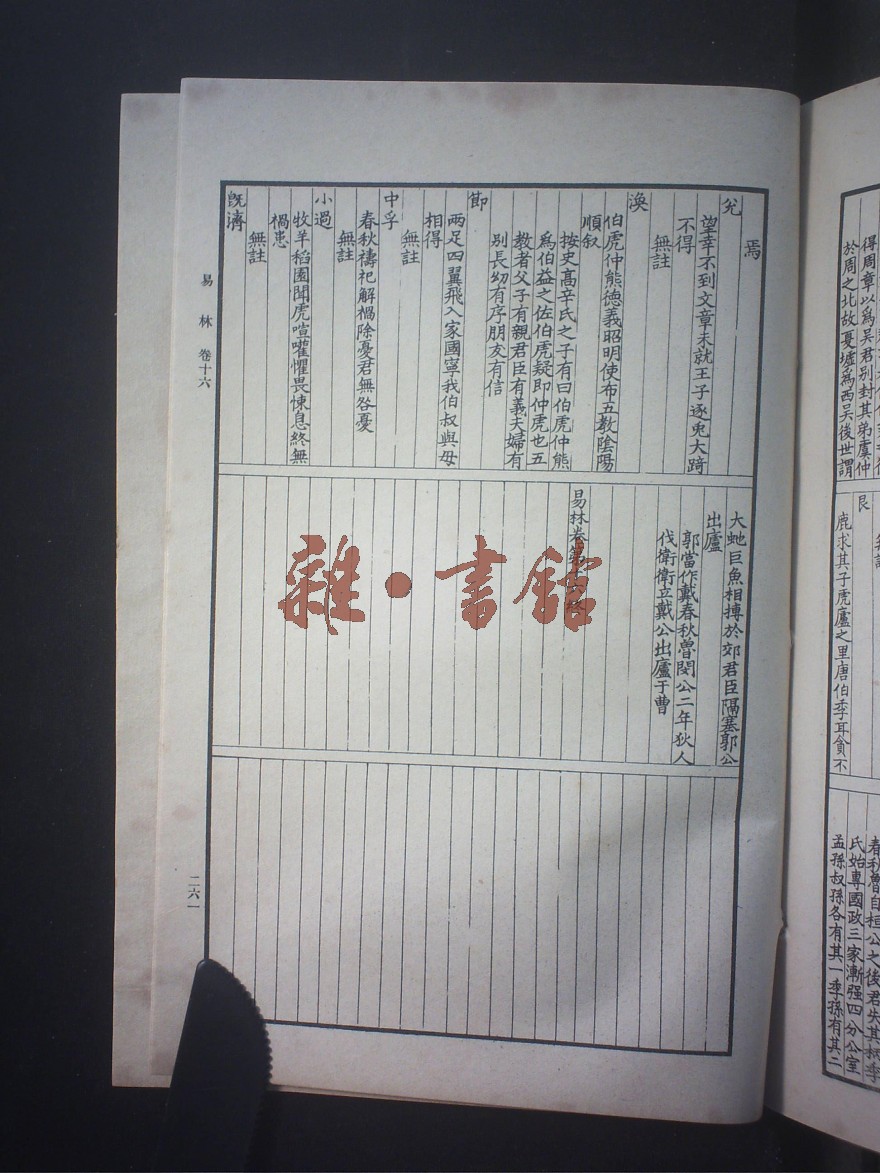 春秋魯自桓公之後君失其柄季
氏始專國政三家漸强四分公室
孟孫叔孫各有其一季孫有其二
得周章以爲吳君别封其弟虞仲
於周之北故夏墟爲西吳後世謂
艮
鹿求其子虎廬之里唐伯季耳貪不
焉
兊
望幸不到文章未就王子逐兎大踦
不得
無註
渙
伯虎仲熊德義昭明使布五教陰陽
順叙
按史高辛氏之子有曰伯虎仲熊
爲伯益之佐伯虎疑即仲虎也五
教者父子有親君臣有義夫婦有
别長幼有序朋友有信
節
兩足四翼飛入家國寧我伯叔與母
相得
無註
中孚
春秋禱祀解禍除憂君無咎憂
無註
小過
牧羊稻園聞虎喧嚾懼畏悚息終無
禍患
無註
旣濟
大虵巨魚相搏於郊君臣隔塞郭公
出廬
郭當作戴春秋魯閔公二年狄人
伐衛衛立戴公出廬于曹
易林卷第十六終
易林 卷十六
二六一
雜·書館